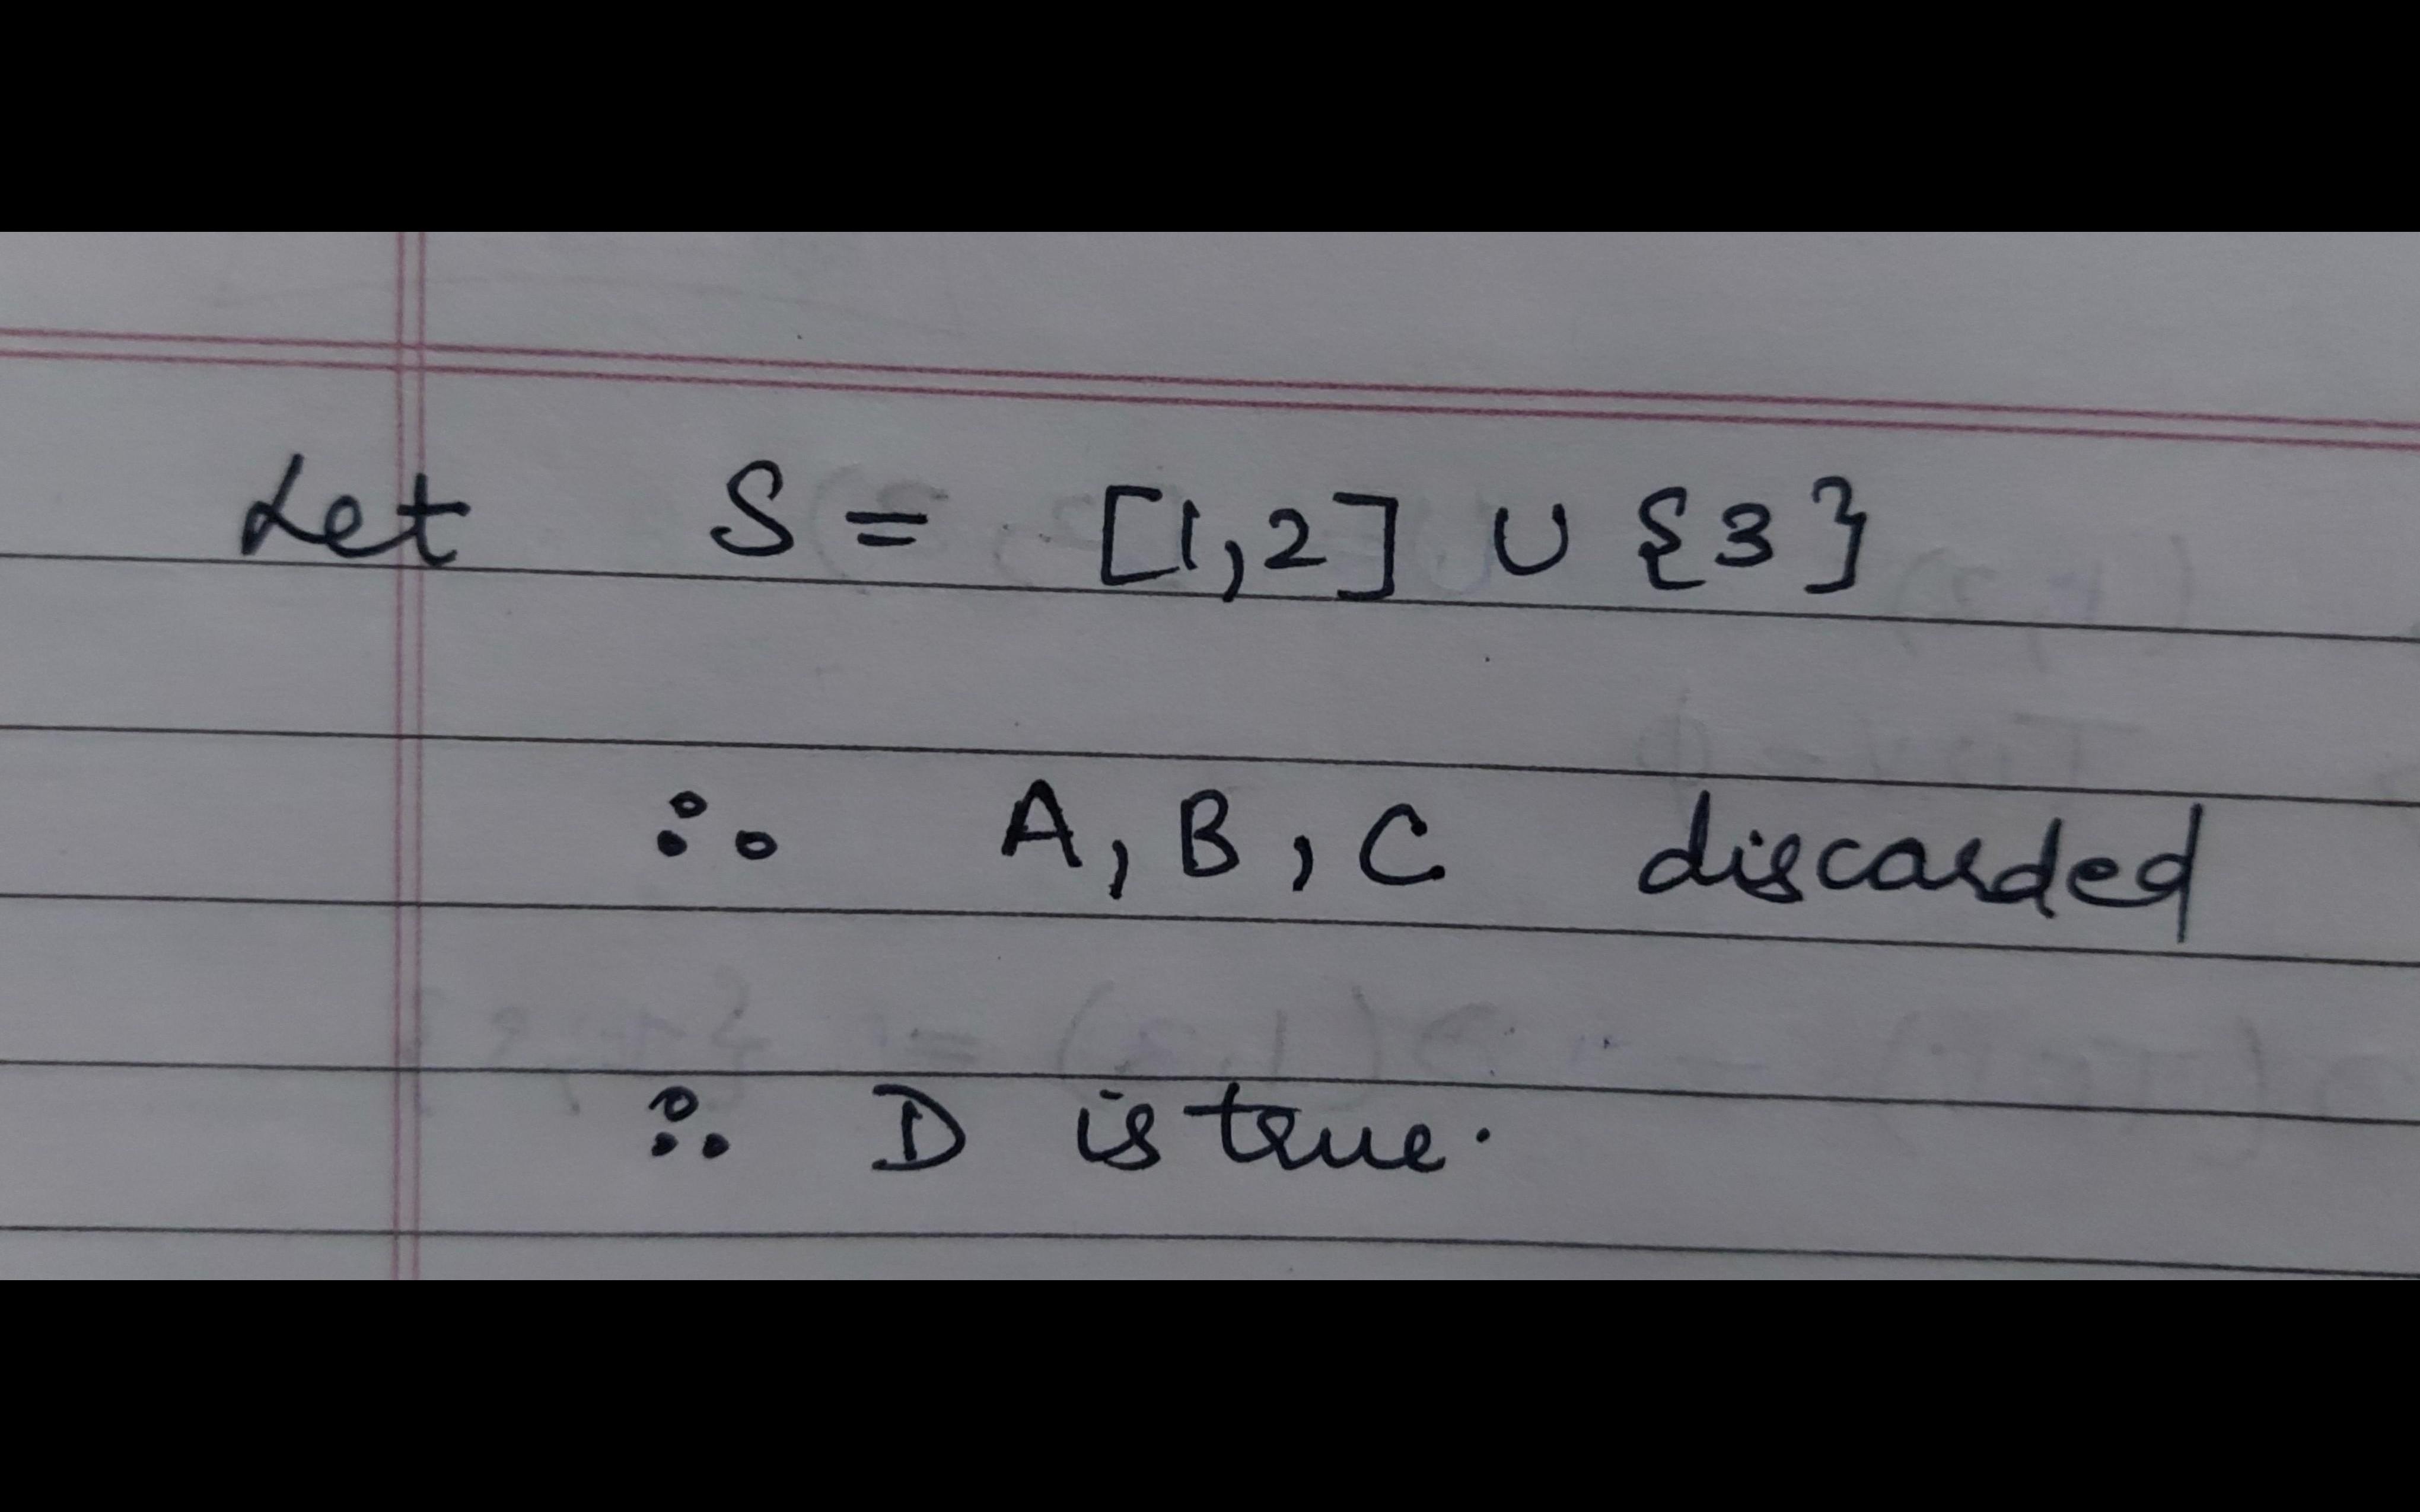 Let S = [1,2] ∪ {3}
∴ A, B, C discarded
∴ D is true.